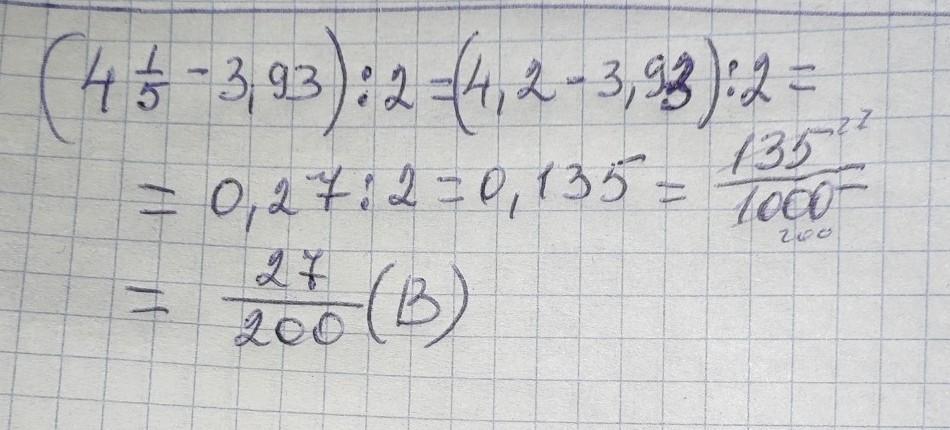 (4 1/5 - 3,93) : 2 = (4,2 - 3,93) : 2 =
= 0,27 : 2 = 0,135 = 135 27/1000 200 =
= 27/200 (B)